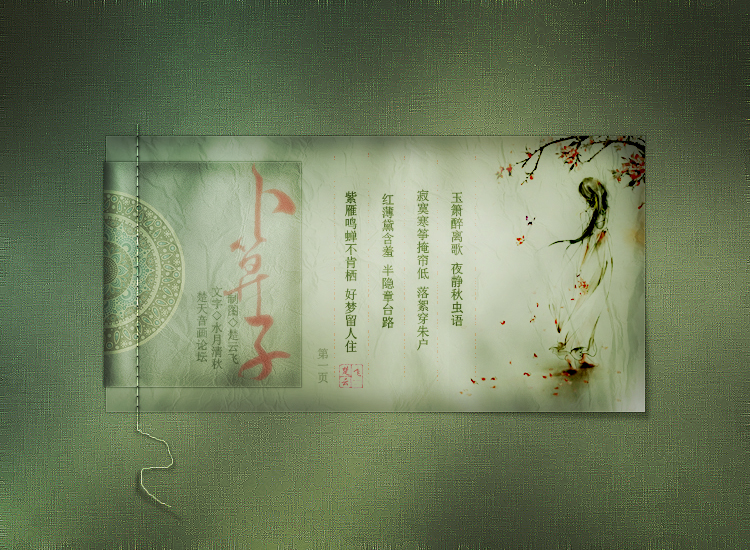 玉箫醉离歌 夜静秋虫语
寂寞寒筝掩帘低 落絮穿朱户
红薄黛含羞 半隐章台路
紫雁鸣蝉不肯栖 好梦留人住
第一页
楚云飞
卜算子
制图◇楚云飞
文字◇水月清秋
楚天音画论坛